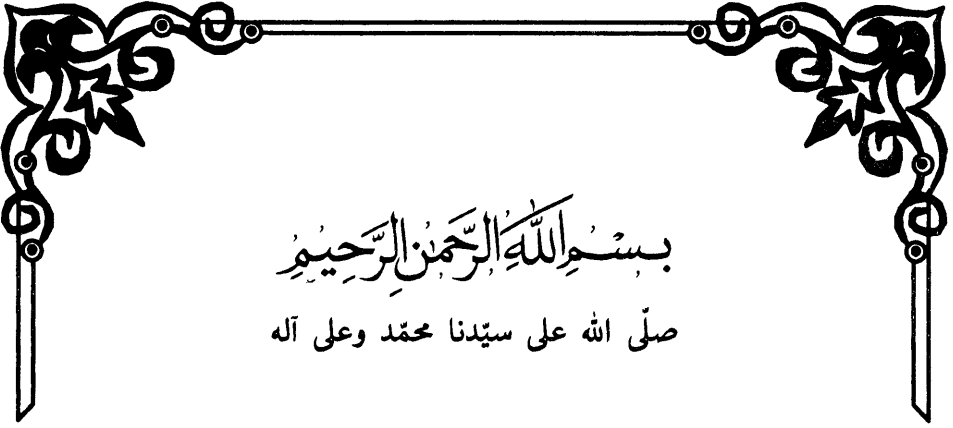 بِسْمِ اللَّهِ الرَّحْمَٰنِ الرَّحِيمِ
صلّى الله على سيّدنا محمّد وعلى آله